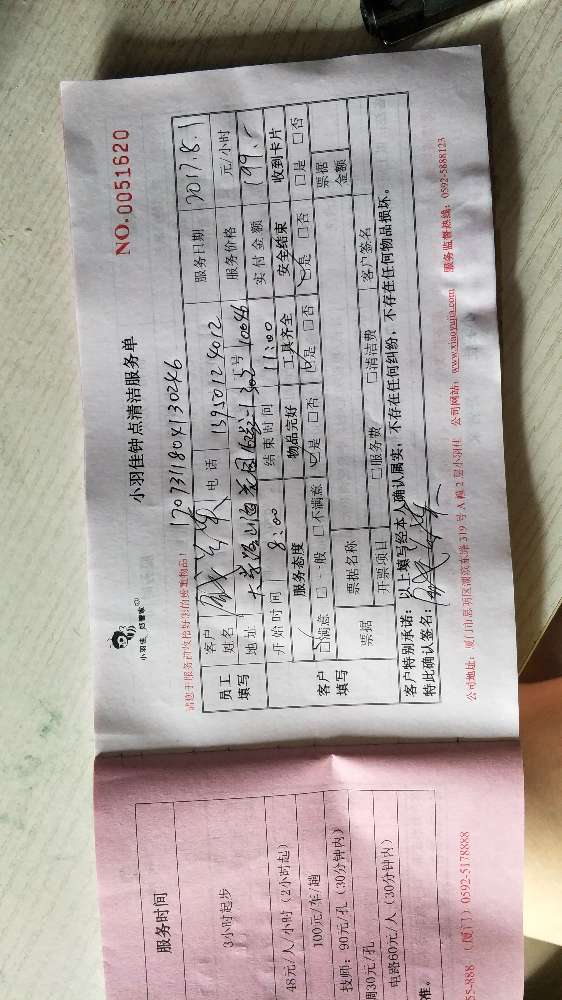 NO.0051620
小羽佳钟点清洁服务单
小羽佳 好管家
17073118041302X6
请您于服务前收检好您的贵重物品!
员工填写 客户姓名 电话 13950124012 服务日期 2017.8.1
地址 工号 10046 服务价格 元/小时
开始时间 8:00 结束时间 11:00 实付金额 199.-
客户填写 服务态度 物品完好 工具齐全 安全结束 收到卡片
□满意 □一般 □不满意 □是 □否 □是 □否 □是 □否 □是 □否
票据 票据名称 票据金额
开票项目 □服务费 □清洁费 客户签名
客户特别承诺: 以上填写经本人确认属实,不存在任何纠纷,不存在任何物品损坏。
特此确认签名:
公司地址:厦门市思明区 319号A幢2层小羽佳 公司网站:www.xiaoyujia.com 服务监督热线:0592-5888123
服务时间
3小时起步
48元/人/小时(2小时起)
100元/车/趟
技师:90元/孔(30分钟内)
周30元/孔
电路60元/人(30分钟内)
准。
55-888 (厦门)0592-5178888